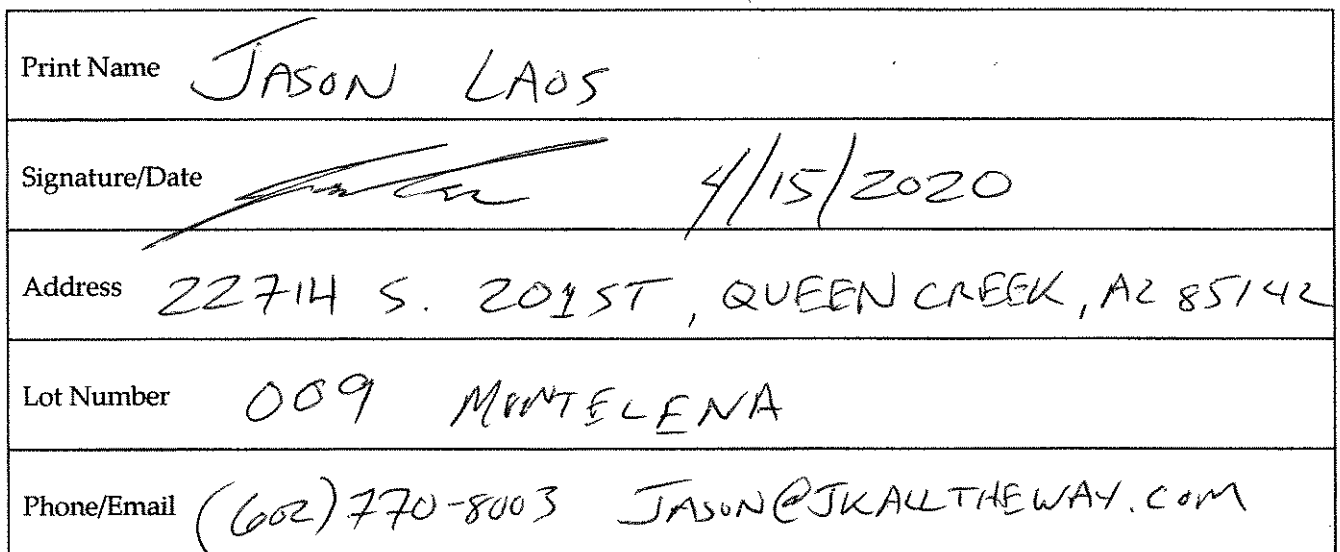 Print Name JASON LAOS
Signature/Date 4/15/2020
Address 22714 S. 201ST, QUEEN CREEK, AZ 85142
Lot Number 009 MONTELENA
Phone/Email (602)770-8003 JASON@JKALLTHEWAY.COM